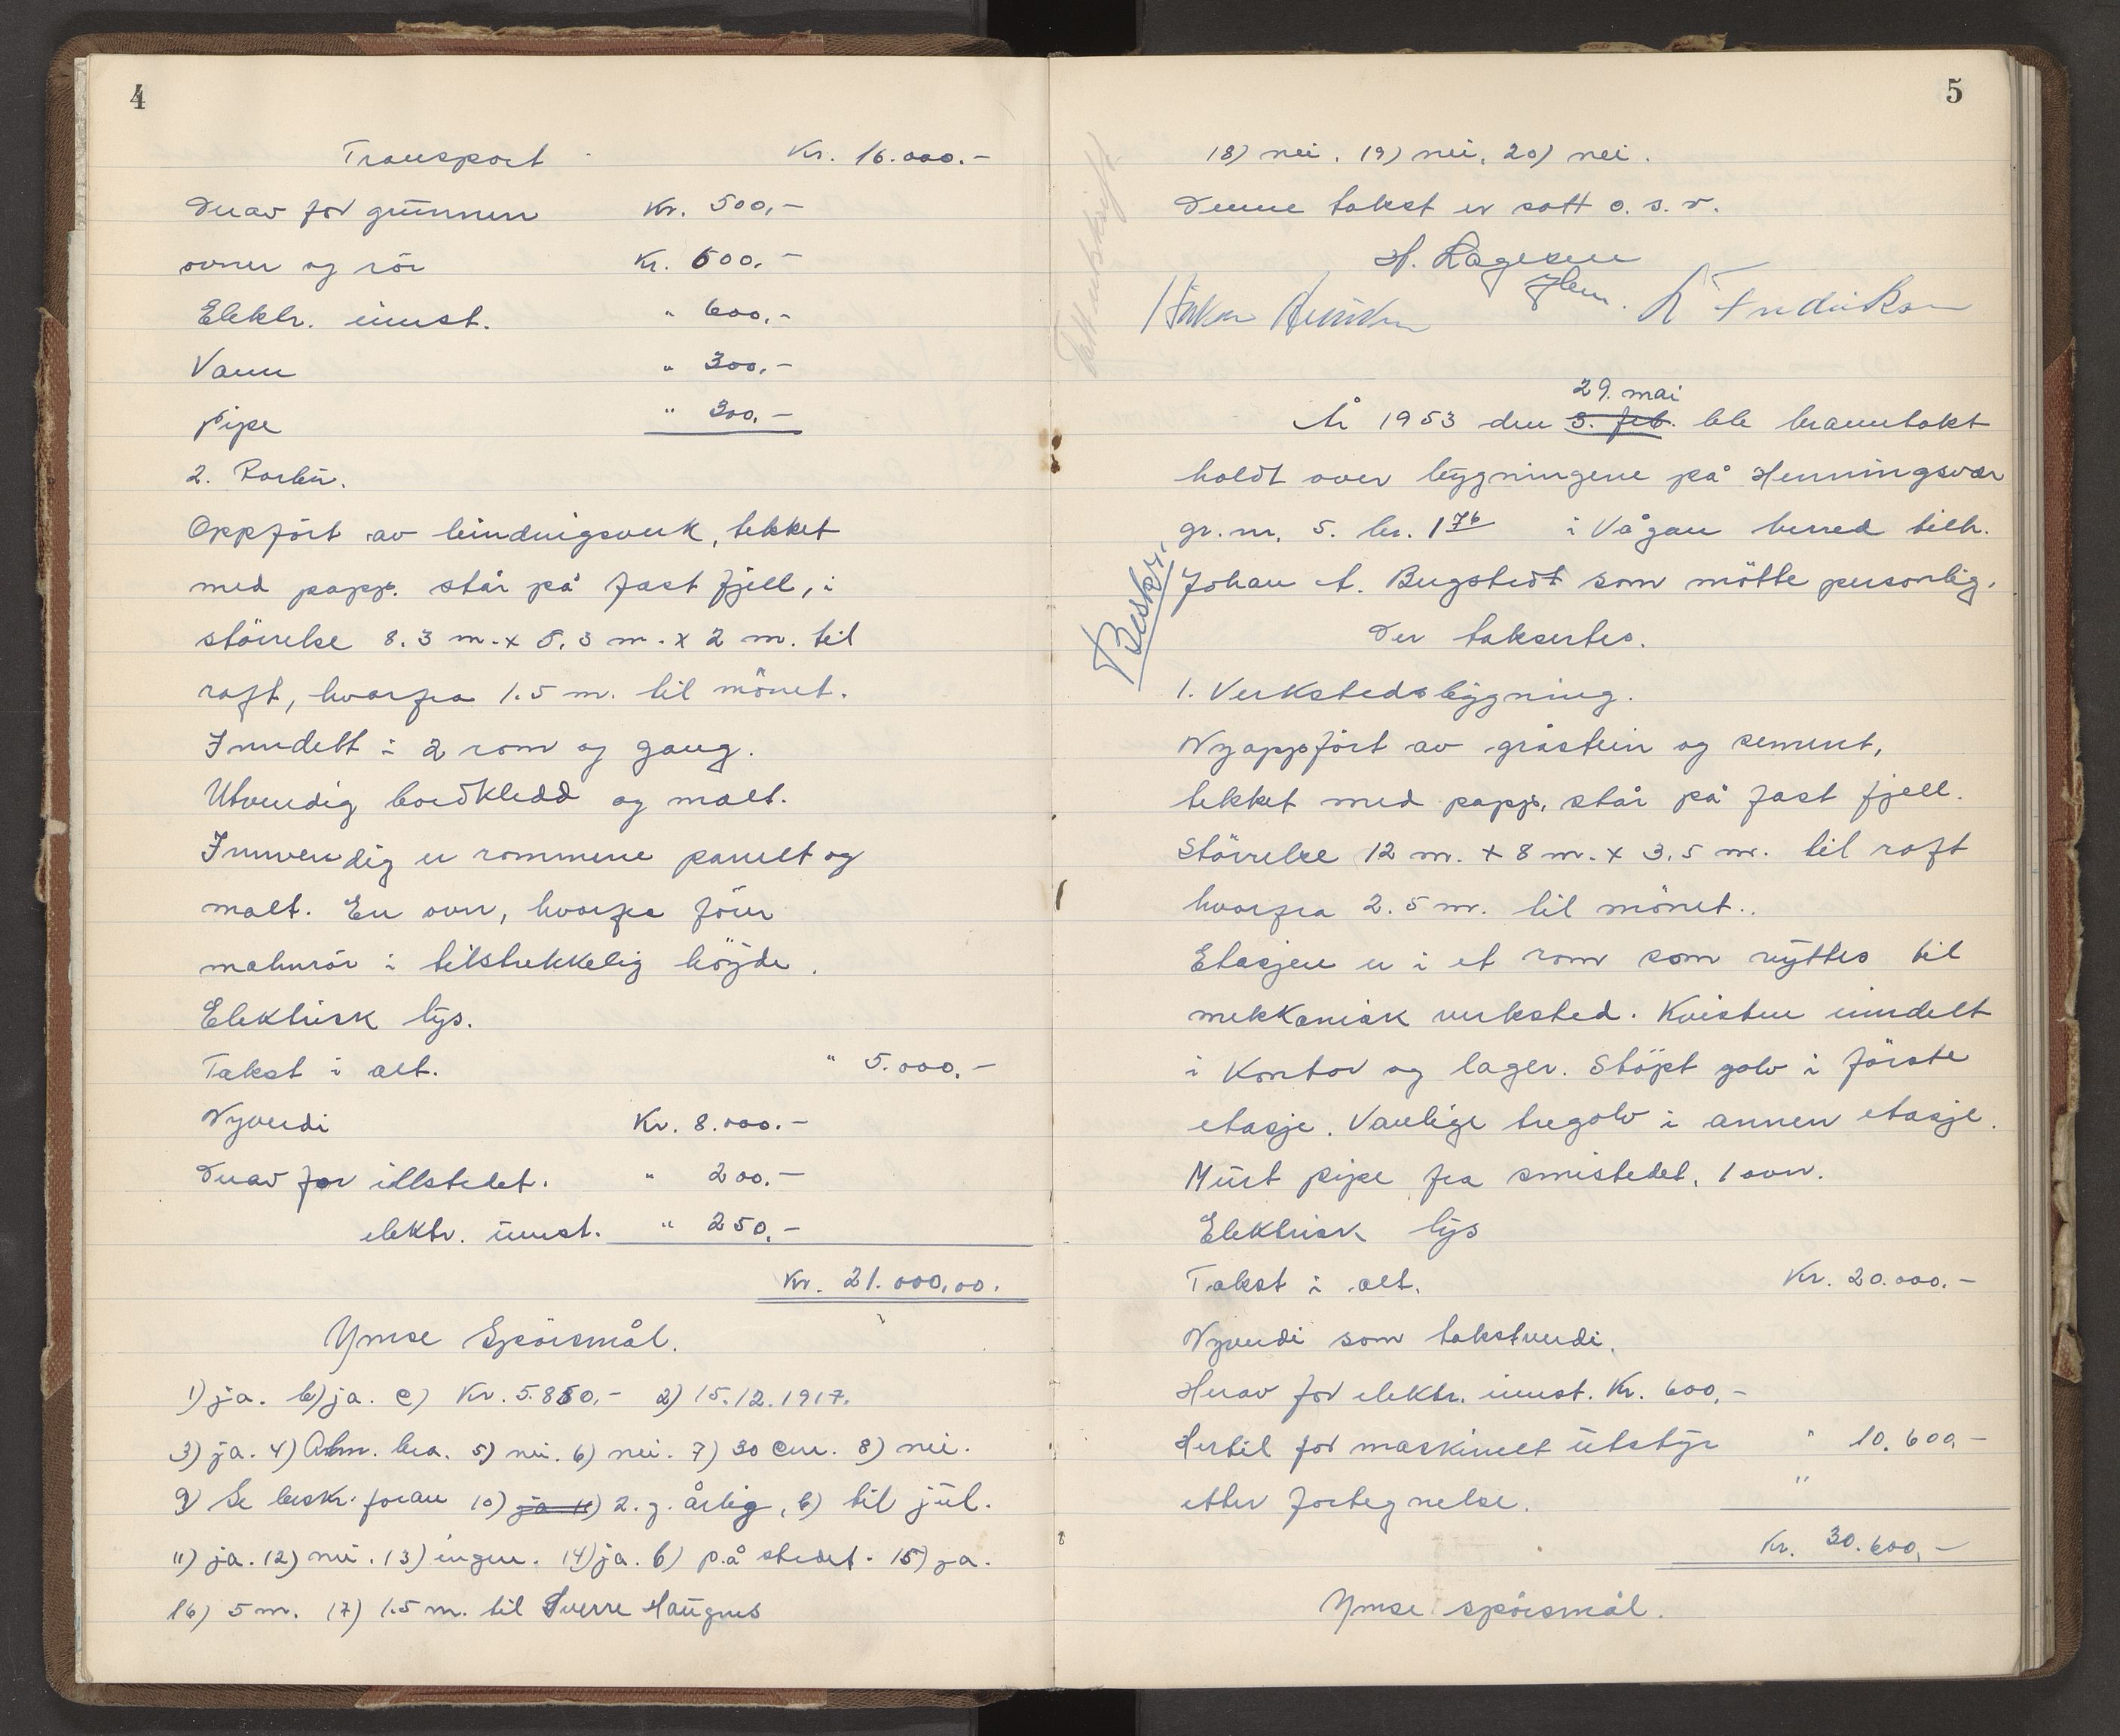 4
Transport Kr. 16.000.-
Derav for grunnen Kr. 500,-
ovner og rör Kr. 600.-
Elektr. innst. " 600,-
Vann " 300,-
pipe " 300.-
2. Rorbu.
Oppfört av bindingsverk, tekket
med papp. står på fast fjell, i
störrelse 8.3 m. x 5.3 m. x 2 m. til
raft, hvorfra 1.5 m. til mönet.
Inndelt i 2 rom og gang.
Utvendig bordkledd og malt.
Innvendig er rommene panelt og
malt. En ovn, hvorfra förer
malmrör i tilstrekkelig höyde.
Elektrisk lys.
Takst i alt. " 5.000.-
Nyverdi Kr. 8.000.-
Derav for illstedet. " 200.-
elektr. innst. " 250.-
Kr. 21.000,00.
Ymse Spörsmål.
1) ja. b) ja. c) Kr. 5.850.- 2) 15.12.1917.
3) ja. 4) Alm. bra. 5) nei. 6) nei. 7) 30 cm. 8) nei.
9) Se beskr. foran 10) ja 11) 2. g. årlig, b) til jul.
11) ja. 12) nei. 13) ingen. 14) ja. b) på stedet. 15) ja.
16) 5 m. 17) 1.5 m. til Sverre Haugnes
5
18) nei. 19) nei. 20) nei.
Denne takst er satt o. s. v.
H. Rågesen
Håkon Henriksen Hem. L Fredriksen
29. mai
År 1953 den 3. feb. ble branntakst
holdt over bygningene på Henningsvær
gr. nr. 5. br. 1 76 i Vågan herred tilh.
Johan A. Bugstedt som mötte personlig.
Beskr.
Der taksertes.
1. Verkstedsbygning.
Nyoppfört av gråstein og sement,
tekket med papp, står på fast fjell.
Störrelse 12 m. x 8 m. x 3.5 m. til raft
hvorfra 2.5 m. til mönet..
Etasjen er i et rom som nyttes til
mekkanisk verksted. Kvisten inndelt
i Kontor og lager. Stöpt golv i förste
etasje. Vanlige tregolv i annen etasje.
Murt pipe fra smistedet, 1 ovn.
Elektrisk lys
Takst i alt. Kr. 20.000.-
Nyverdi som takstverdi.
Herav for elektr. innst. Kr. 600,-
Hertil for maskinelt utstyr " 10.600,-
etter fortegnelse. "
Kr. 30.600,-
Ymse spörsmål.